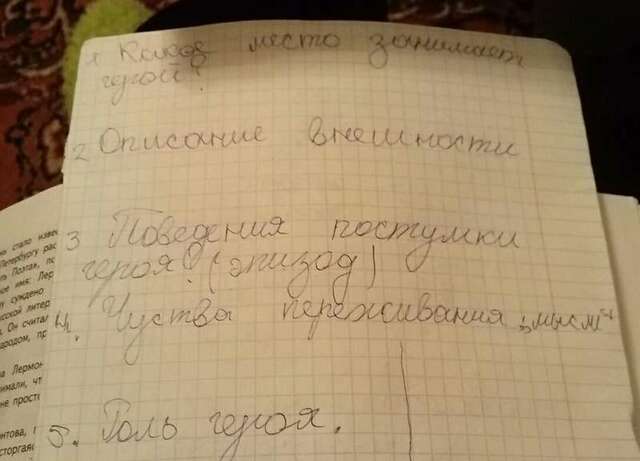 1 Какое место занимает
герой?
2 Описание внешности
3 Поведения постумки
героя? (эпизод)
4. Чуства переживания,
5. Роль героя.
но стало изве
Петербургу рас
ое имя: Лер
у суждено
усской литер
. Он считал
ародом, пр
а Лермон
нимали, чт
не прост
онтова,
сторгая